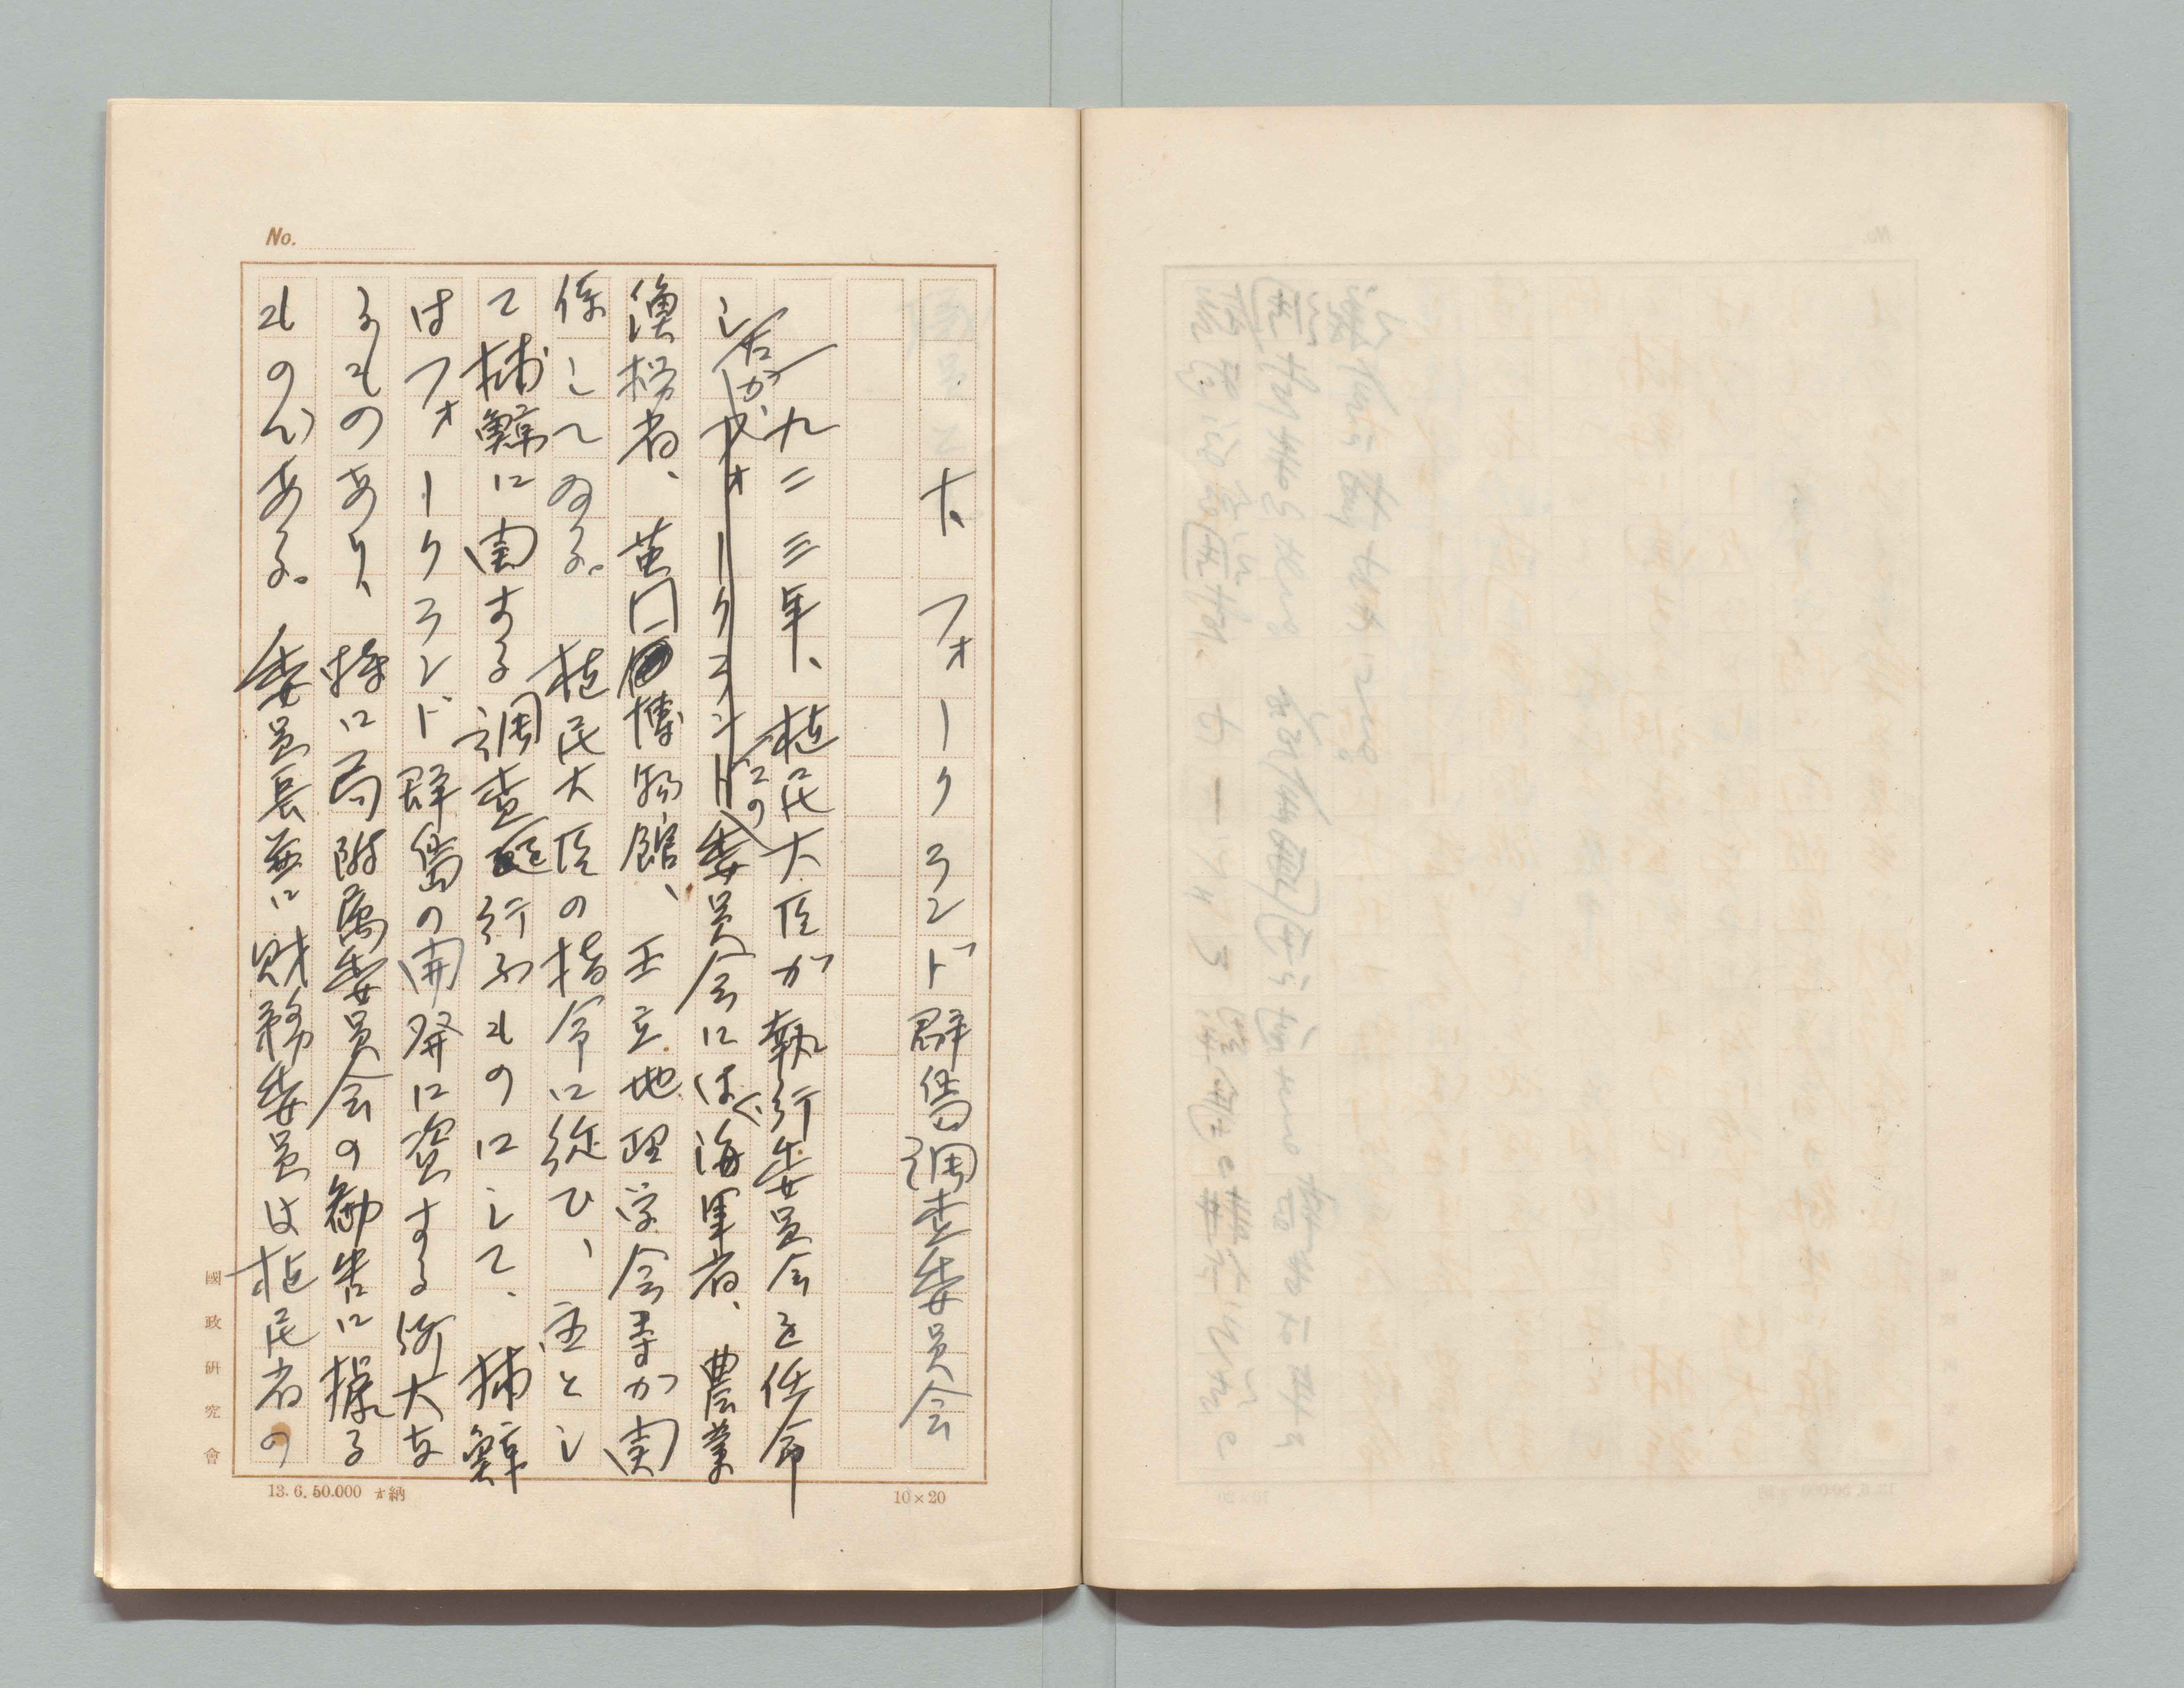 No.
十、フォークランド群島調査委員会
一九二三年、植民大臣が執行委員会を任命
したが、この委員会には海軍省、農業
フォークランド
漁撈省、英国博物館、王立地理学会等が関
係してゐる。植民大臣の指令に従ひ、主とし
て捕鯨に関する調査を行ふものにして、捕鯨
はフォークランド群島の開発に資する大な
るものあり、特に局附属委員会の勧告に據る
ものである。委員長並に財務委員は植民省の
國政研究會
13.6.50.000 ｵ納
10×20